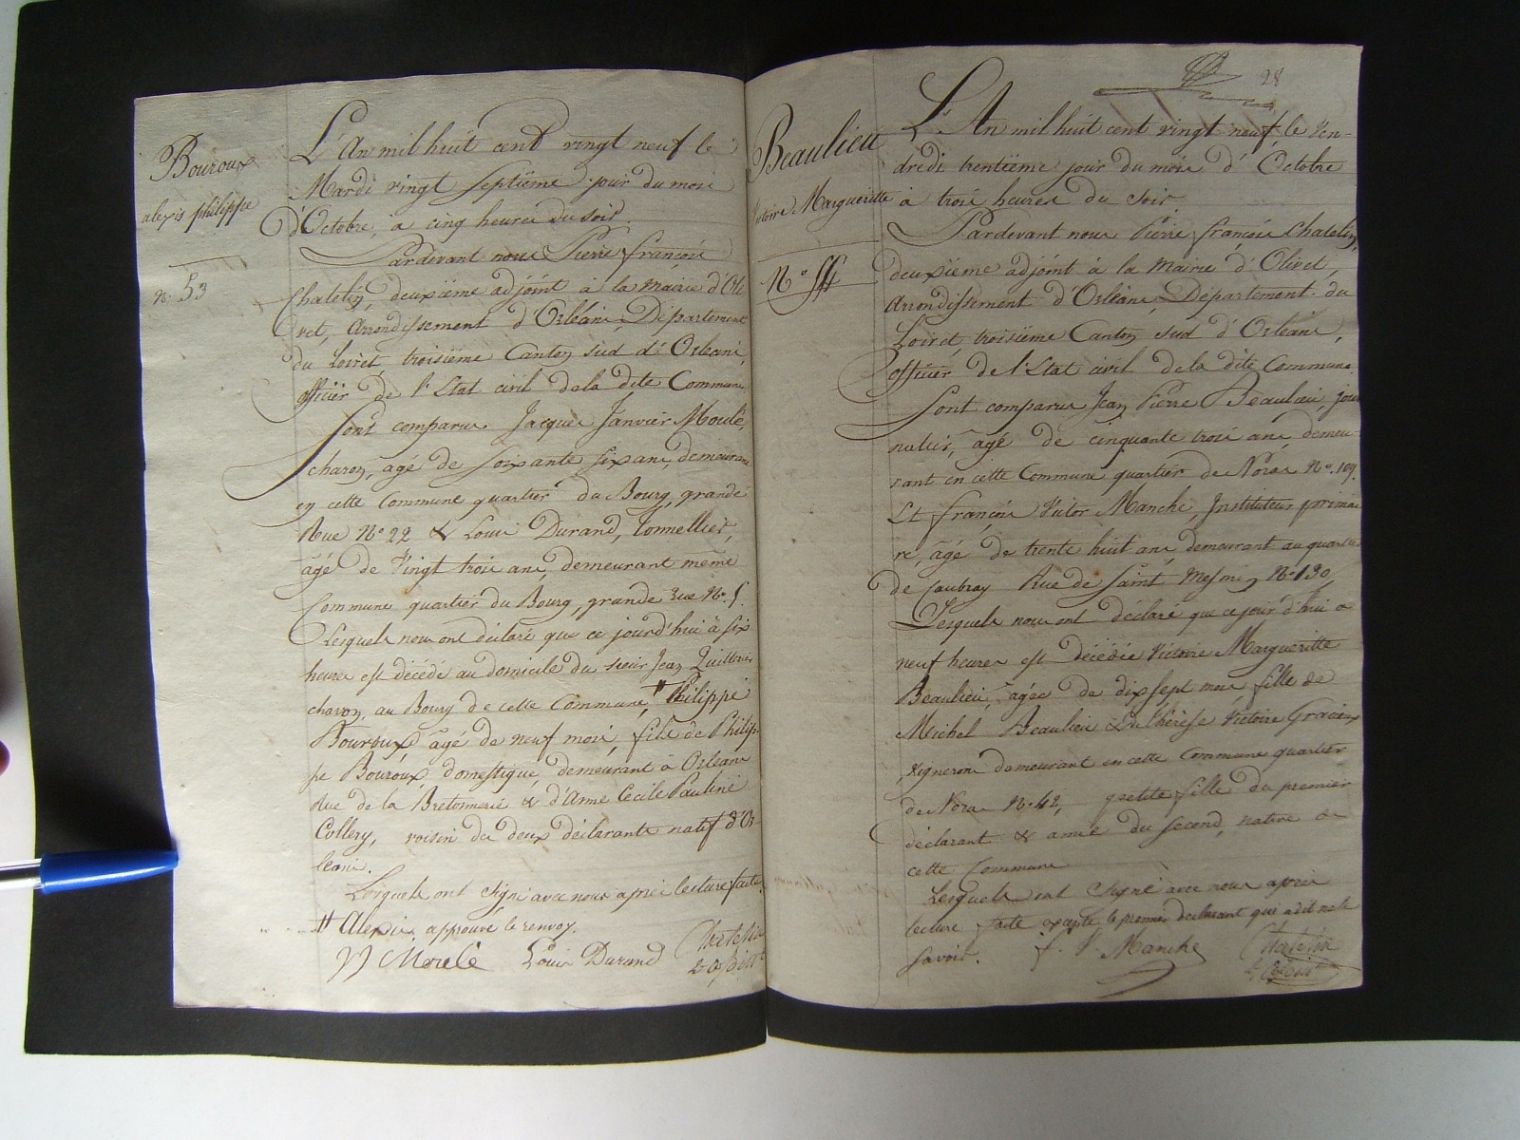 Bouroux
alexis philippe
n. 53
L'An mil huit cent vingt neuf le
Mardi vingt septième jour du mois
d'Octobre, à cinq heures du soir.
Pardevant nous Pierre françois
Chatelin, deuxième adjoint à la Mairie d'Oli
vet, Arrondissement d'Orléans, Département
du Loiret, troisième Canton sud d'Orleans,
officier de l'Etat civil de la dite Commune
Sont comparus Jacques Janvier Moulé,
charon, agé de soixante six ans, demeurant
en cette Commune quartier du Bourg, grande
Rue N° 22 & Louis Durand, Tonnellier,
âgé de Vingt trois ans, demeurant même
Commune quartier du Bourg, grande Rue N° 5.
Lesquels nous ont déclaré que ce jourd'hui à six
heures est décédé au domicile du sieur Jean
charon, au Bourg de cette Commune, # Philippe
Bouroux âgé de neuf mois, fils de Philip-
pe Bouroux domestique, demeurant à Orleans
Rue de la Bretonnerie & d'Anne Cecile Pauline
Collery, voisin des deux déclarants natif d'Or-
leans.
Lesquels ont signé avec nous après lecture faite.
# Alexis. approuvé le renvoy.
Louis Durand Chatelin
adjoint
28
Beaulieu
Victoire Margueritte
N° 54
L'An mil huit cent vingt neuf, le Ven-
dredi trentième jour du mois d'Octobre
à trois heures du soir
Pardevant nous Pierre françois Chatelin,
deuxième adjoint à la Mairie d'Olivet,
Arrondissement d'Orléans, Département du
Loiret, troisième Canton sud d'Orleans,
officier de l'Etat civil de la dite Commune.
Sont comparus Jean Pierre Beaulieu jour
nalier, âgé de cinquante trois ans, demeu-
rant en cette Commune quartier de Noras N° 109.
Et françois Victor Manche, Instituteur primai
re, âgé de trente huit ans, demeurant au quartier
de Caubray Rue de Saint Mesmin N° 130,
Lesquels nous ont déclaré que ce jour d'hui a
neuf heures est décédée Victoire Margueritte
Beaulieu, agée de dix sept mois fille de
Michel Beaulieu & de Thérèse Victoire
Vigneron demeurant en cette Commune quartier
de Noras N° 42, petite fille du premier
déclarant & amie du second, native de
cette Commune
Lesquels ont signé avec nous après
lecture faite excepté le premier declarant qui a dit ne le
savoir. f. V. Manche Chatelin
adjoint